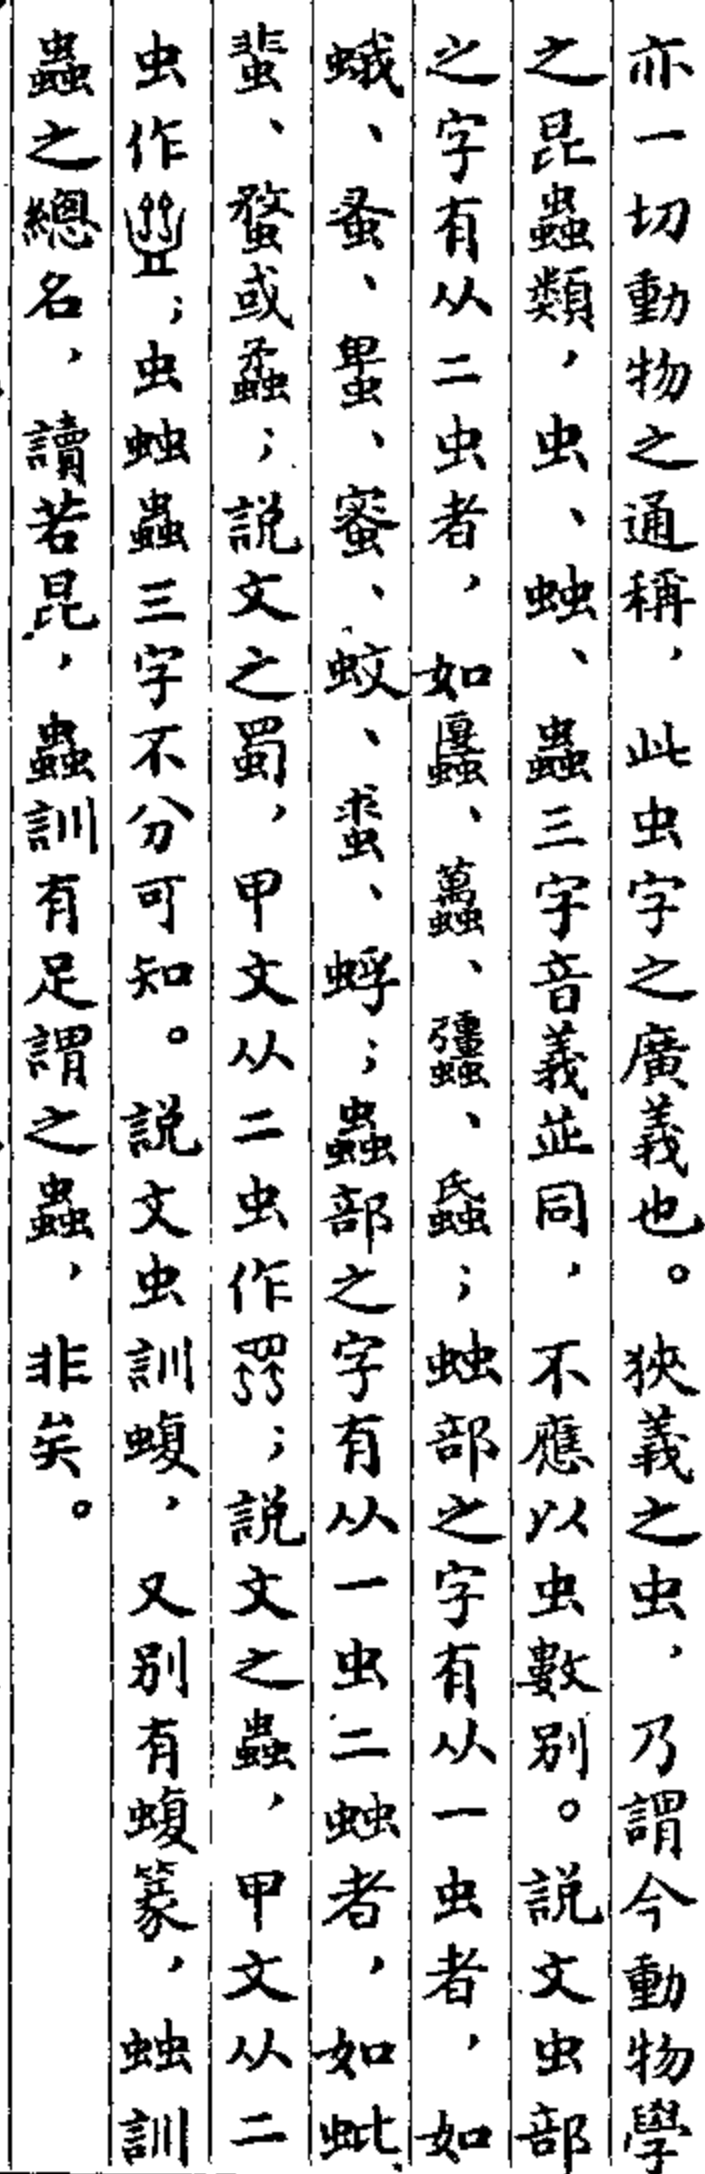 亦一切動物之通稱，此虫字之廣義也。狹義之虫，乃謂今動物學
之昆蟲類，虫、䖵、蟲三字音義並同，不應以虫數別。説文虫部
之字有从二虫者，如、、、；䖵部之字有从一虫者，如
蛾、蚤、、蜜、蚊、、蜉；蟲部之字有从一虫二䖵者，如蚍、
蜚、蝥或蟊；説文之蜀，甲文从二虫作；説文之蟲，甲文从二
虫作；虫䖵蟲三字不分可知。説文虫訓蝮，又别有蝮篆，䖵訓
蟲之總名，讀若昆，蟲訓有足謂之蟲，非矣。